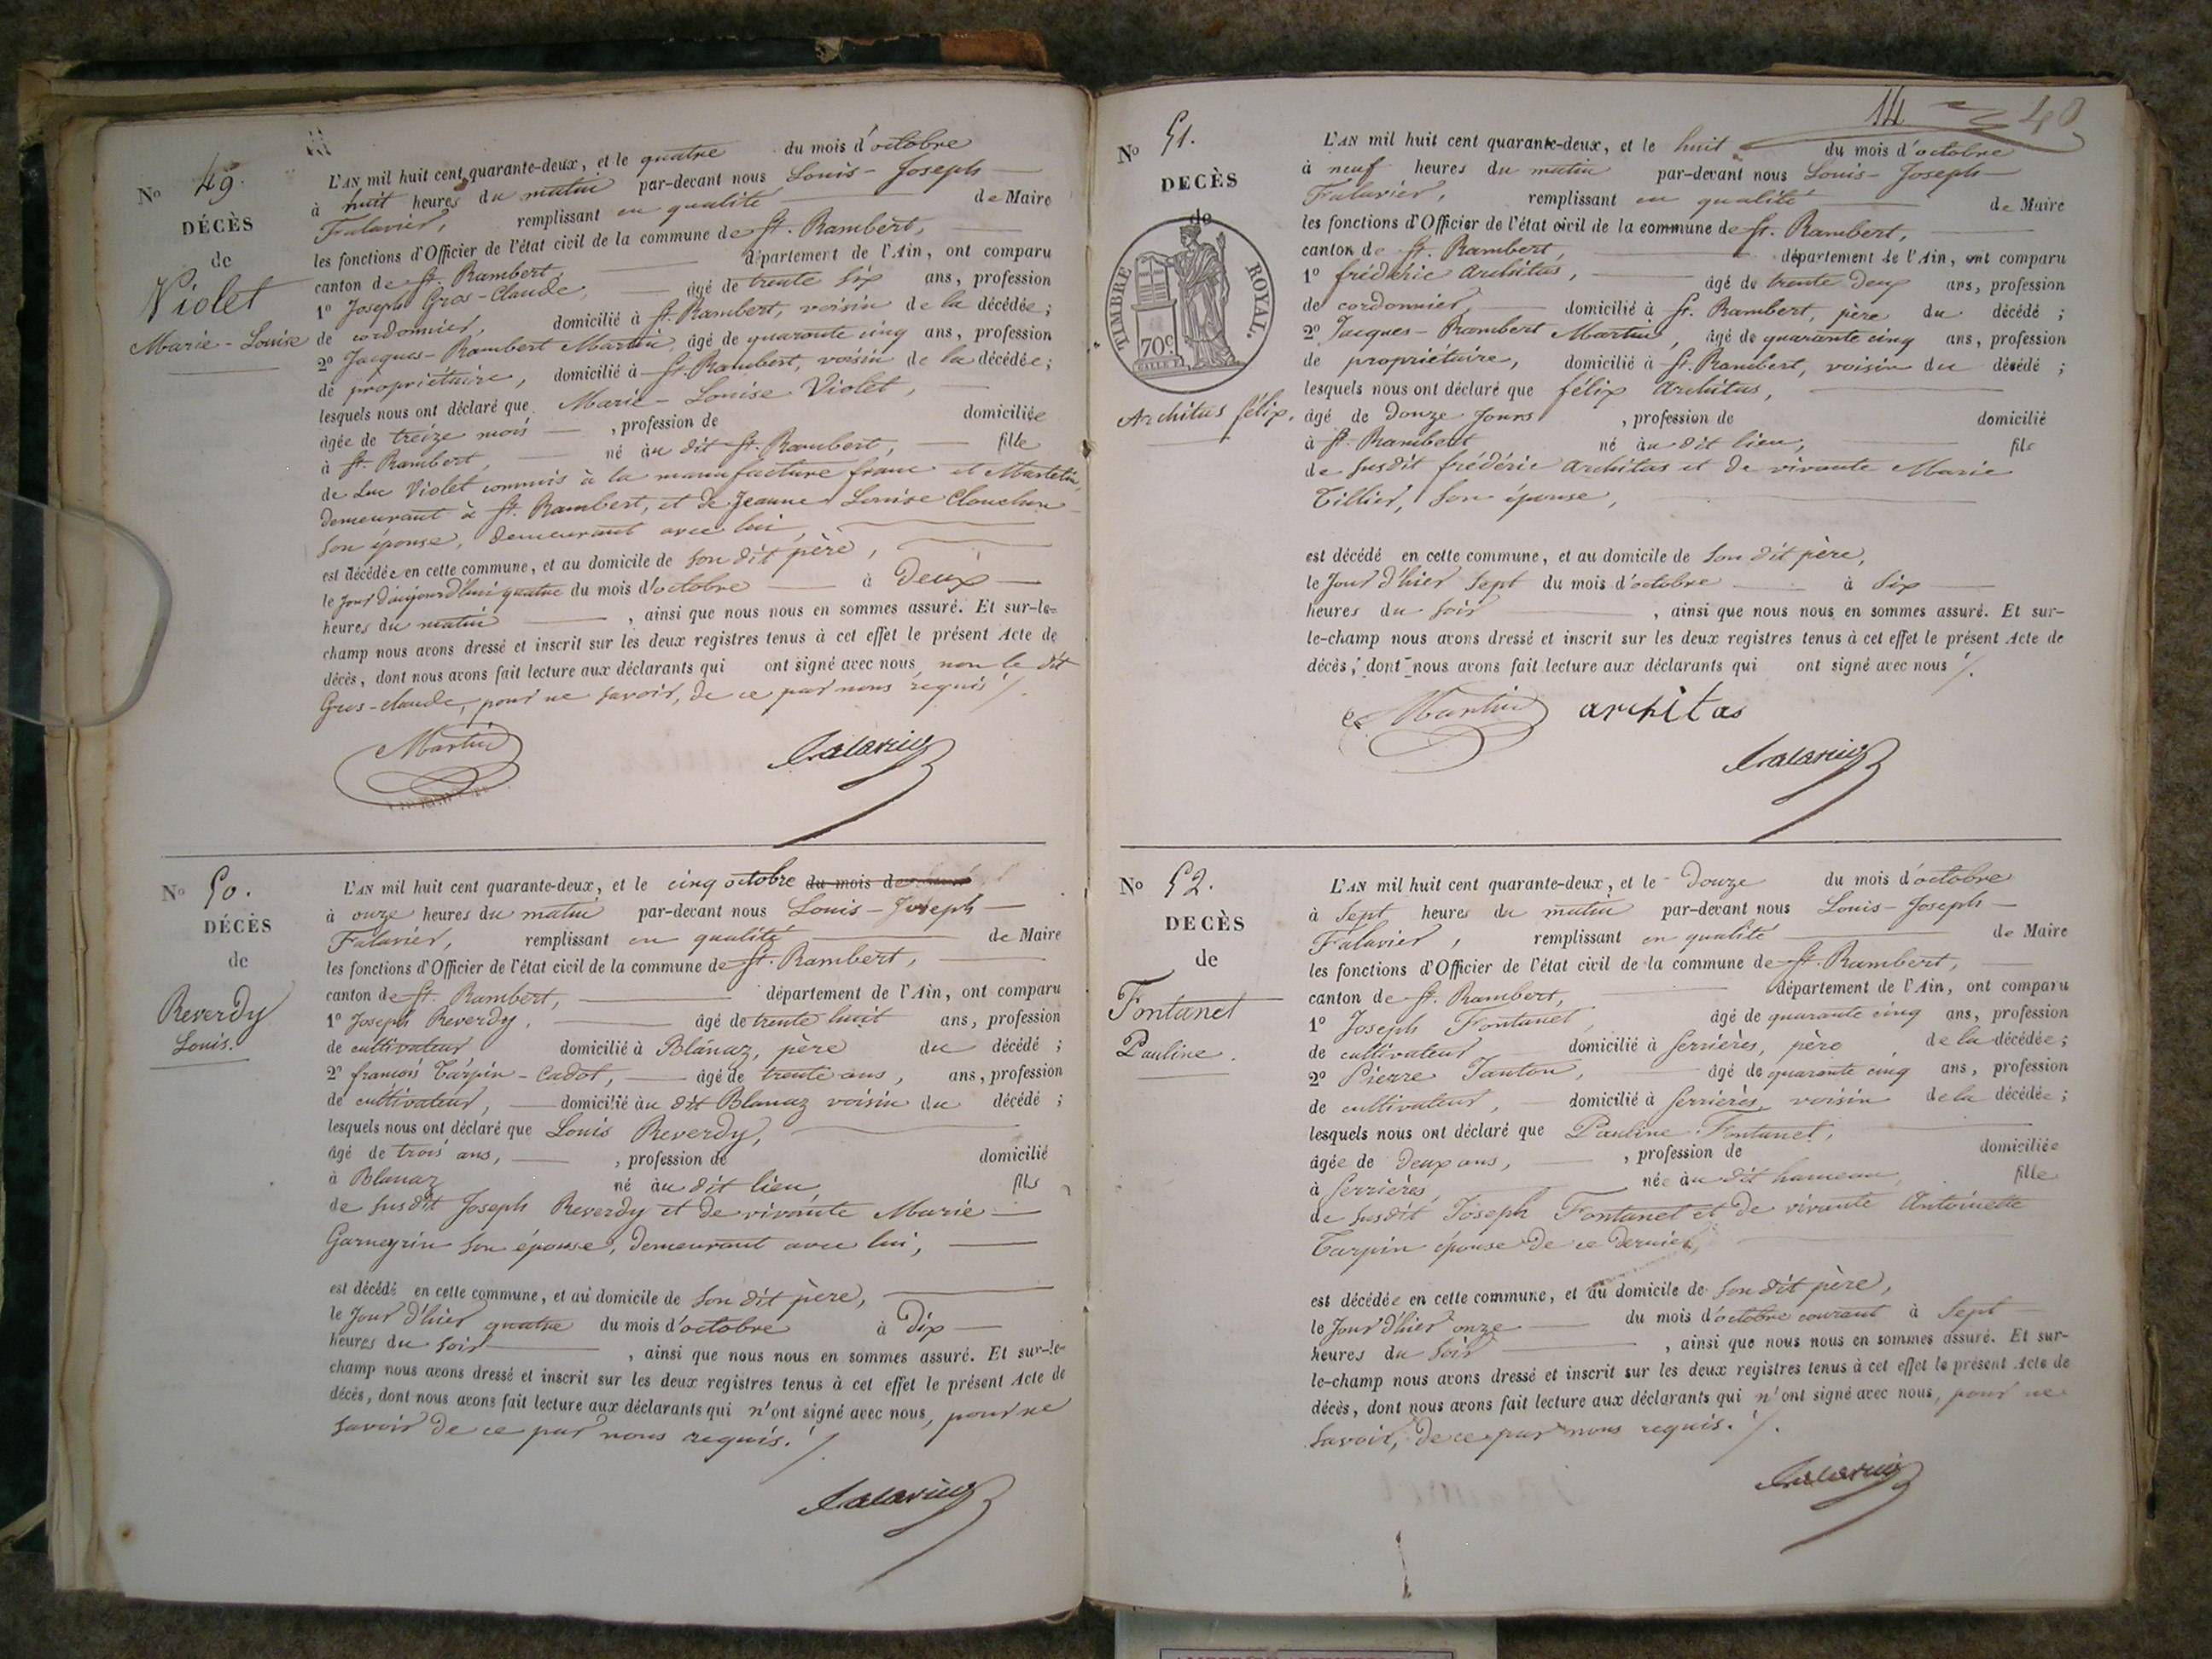 No 49.
DÉCÈS
de
Violet
Marie-Louise
L'AN mil huit cent quarante-deux, et le quatre du mois d'octobre
à huit heures du matin par-devant nous Louis-Joseph
Falavier, remplissant en qualité de Maire
les fonctions d'Officier de l'état civil de la commune de St. Rambert,
canton de St. Rambert, département de l'Ain, ont comparu
1º Joseph Gros-Claude, âgé de trente six ans, profession
de cordonnier, domicilié à St. Rambert, voisin de la décédée;
2º Jacques-Rambert Martin, âgé de quarante cinq ans, profession
de propriétaire, domicilié à St. Rambert, voisin de la décédée;
lesquels nous ont déclaré que Marie-Louise Violet,
âgée de treize mois, profession de domiciliée
à St. Rambert, né au dit St. Rambert, fille
de Luc Violet commis à la manufacture franc et Martelin,
demeurant à St. Rambert, et de Jeanne Louise
son épouse, demeurant avec lui,
est décédée en cette commune, et au domicile de son dit père,
le jour d'aujourd'hui quatre du mois d'octobre à deux
heures du matin, ainsi que nous nous en sommes assuré. Et sur-le-
champ nous avons dressé et inscrit sur les deux registres tenus à cet effet le présent Acte de
décès, dont nous avons fait lecture aux déclarants qui ont signé avec nous, non le dit
Gros-claude, pour ne savoir, de ce par nous requis ./.
Martin Falavier
No 50.
DÉCÈS
de
Reverdy
Louis.
L'AN mil huit cent quarante-deux, et le cinq octobre du mois de
à onze heures du matin par-devant nous Louis-Joseph
Falavier, remplissant en qualité de Maire
les fonctions d'Officier de l'état civil de la commune de St. Rambert,
canton de St. Rambert, département de l'Ain, ont comparu
1º Joseph Reverdy, âgé de trente huit ans, profession
de cultivateur domicilié à Blanaz, père du décédé;
2º françois Tarpin-Cadot, âgé de trente ans, ans, profession
de cultivateur, domicilié au dit Blanaz voisin du décédé;
lesquels nous ont déclaré que Louis Reverdy,
âgé de trois ans, profession de domicilié
à Blanaz né au dit lieu, fils
de susdit Joseph Reverdy et de vivante Marie
Garneyrin son épouse, demeurant avec lui,
est décédé en cette commune, et au domicile de son dit père,
le jour d'hier quatre du mois d'octobre à dix
heures du soir, ainsi que nous nous en sommes assuré. Et sur-le-
champ nous avons dressé et inscrit sur les deux registres tenus à cet effet le présent Acte de
décès, dont nous avons fait lecture aux déclarants qui n'ont signé avec nous, pour ne
savoir de ce par nous requis. /.
Falavier
14 40
No 51.
DECÈS
de
TIMBRE ROYAL.
70c
Architas félix.
L'AN mil huit cent quarante-deux, et le huit du mois d'octobre
à neuf heures du matin par-devant nous Louis-Joseph
Falavier, remplissant en qualité de Maire
les fonctions d'Officier de l'état civil de la commune de St. Rambert,
canton de St. Rambert, département de l'Ain, ont comparu
1º frédéric Architas, âgé de trente deux ans, profession
de cordonnier, domicilié à St. Rambert, père du décédé;
2º Jacques-Rambert Martin, âgé de quarante cinq ans, profession
de propriétaire, domicilié à St. Rambert, voisin du décédé;
lesquels nous ont déclaré que félix Architas,
âgé de douze jours, profession de domicilié
à St. Rambert né au dit lieu, fils
de susdit frédéric Architas et de vivante Marie
Tillier, son épouse,
est décédé en cette commune, et au domicile de son dit père,
le jour d'hier sept du mois d'octobre à six
heures du soir, ainsi que nous nous en sommes assuré. Et sur-
le-champ nous avons dressé et inscrit sur les deux registres tenus à cet effet le présent Acte de
décès, dont nous avons fait lecture aux déclarants qui ont signé avec nous ./.
Martin architas
Falavier
No 52.
DECÈS
de
Fontanet
Pauline.
L'AN mil huit cent quarante-deux, et le douze du mois d'octobre
à sept heures du matin par-devant nous Louis-Joseph
Falavier, remplissant en qualité de Maire
les fonctions d'Officier de l'état civil de la commune de St. Rambert,
canton de St. Rambert, département de l'Ain, ont comparu
1º Joseph Fontanet, âgé de quarante cinq ans, profession
de cultivateur domicilié à Serrières, père de la décédée;
2º Pierre Tanton, âgé de quarante cinq ans, profession
de cultivateur, domicilié à Serrières, voisin de la décédée;
lesquels nous ont déclaré que Pauline Fontanet,
âgée de deux ans, profession de domiciliée
à Serrières, née au dit hameau, fille
de susdit Joseph Fontanet et de vivante Antoinette
Tarpin épouse de ce dernier,
est décédée en cette commune, et au domicile de son dit père,
le jour d'hier onze du mois d'octobre courant à sept
heures du soir, ainsi que nous nous en sommes assuré. Et sur-
le-champ nous avons dressé et inscrit sur les deux registres tenus à cet effet le présent Acte de
décès, dont nous avons fait lecture aux déclarants qui n'ont signé avec nous, pour ne
savoir, de ce par nous requis. /.
Falavier